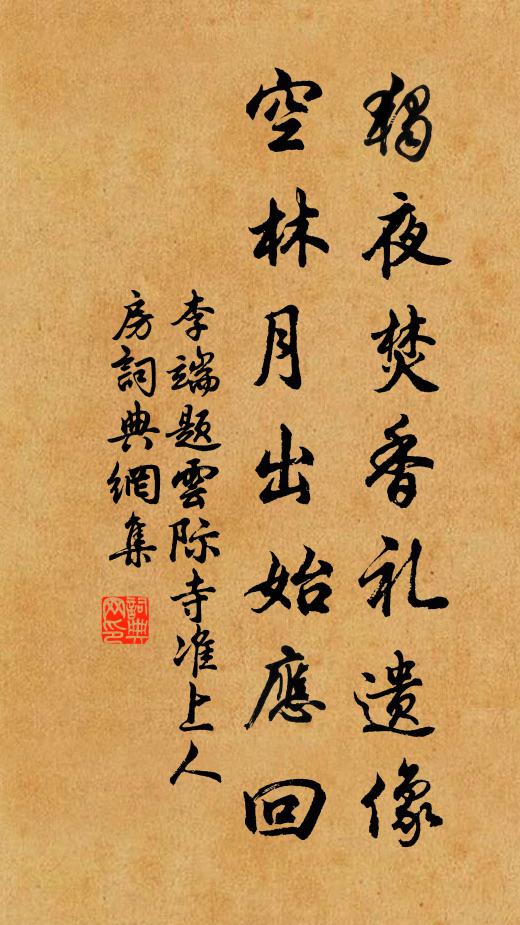 獨夜焚香礼遺像
空林月出始應回
李端題雲际寺准上人
房詞典網集
詞典
网印